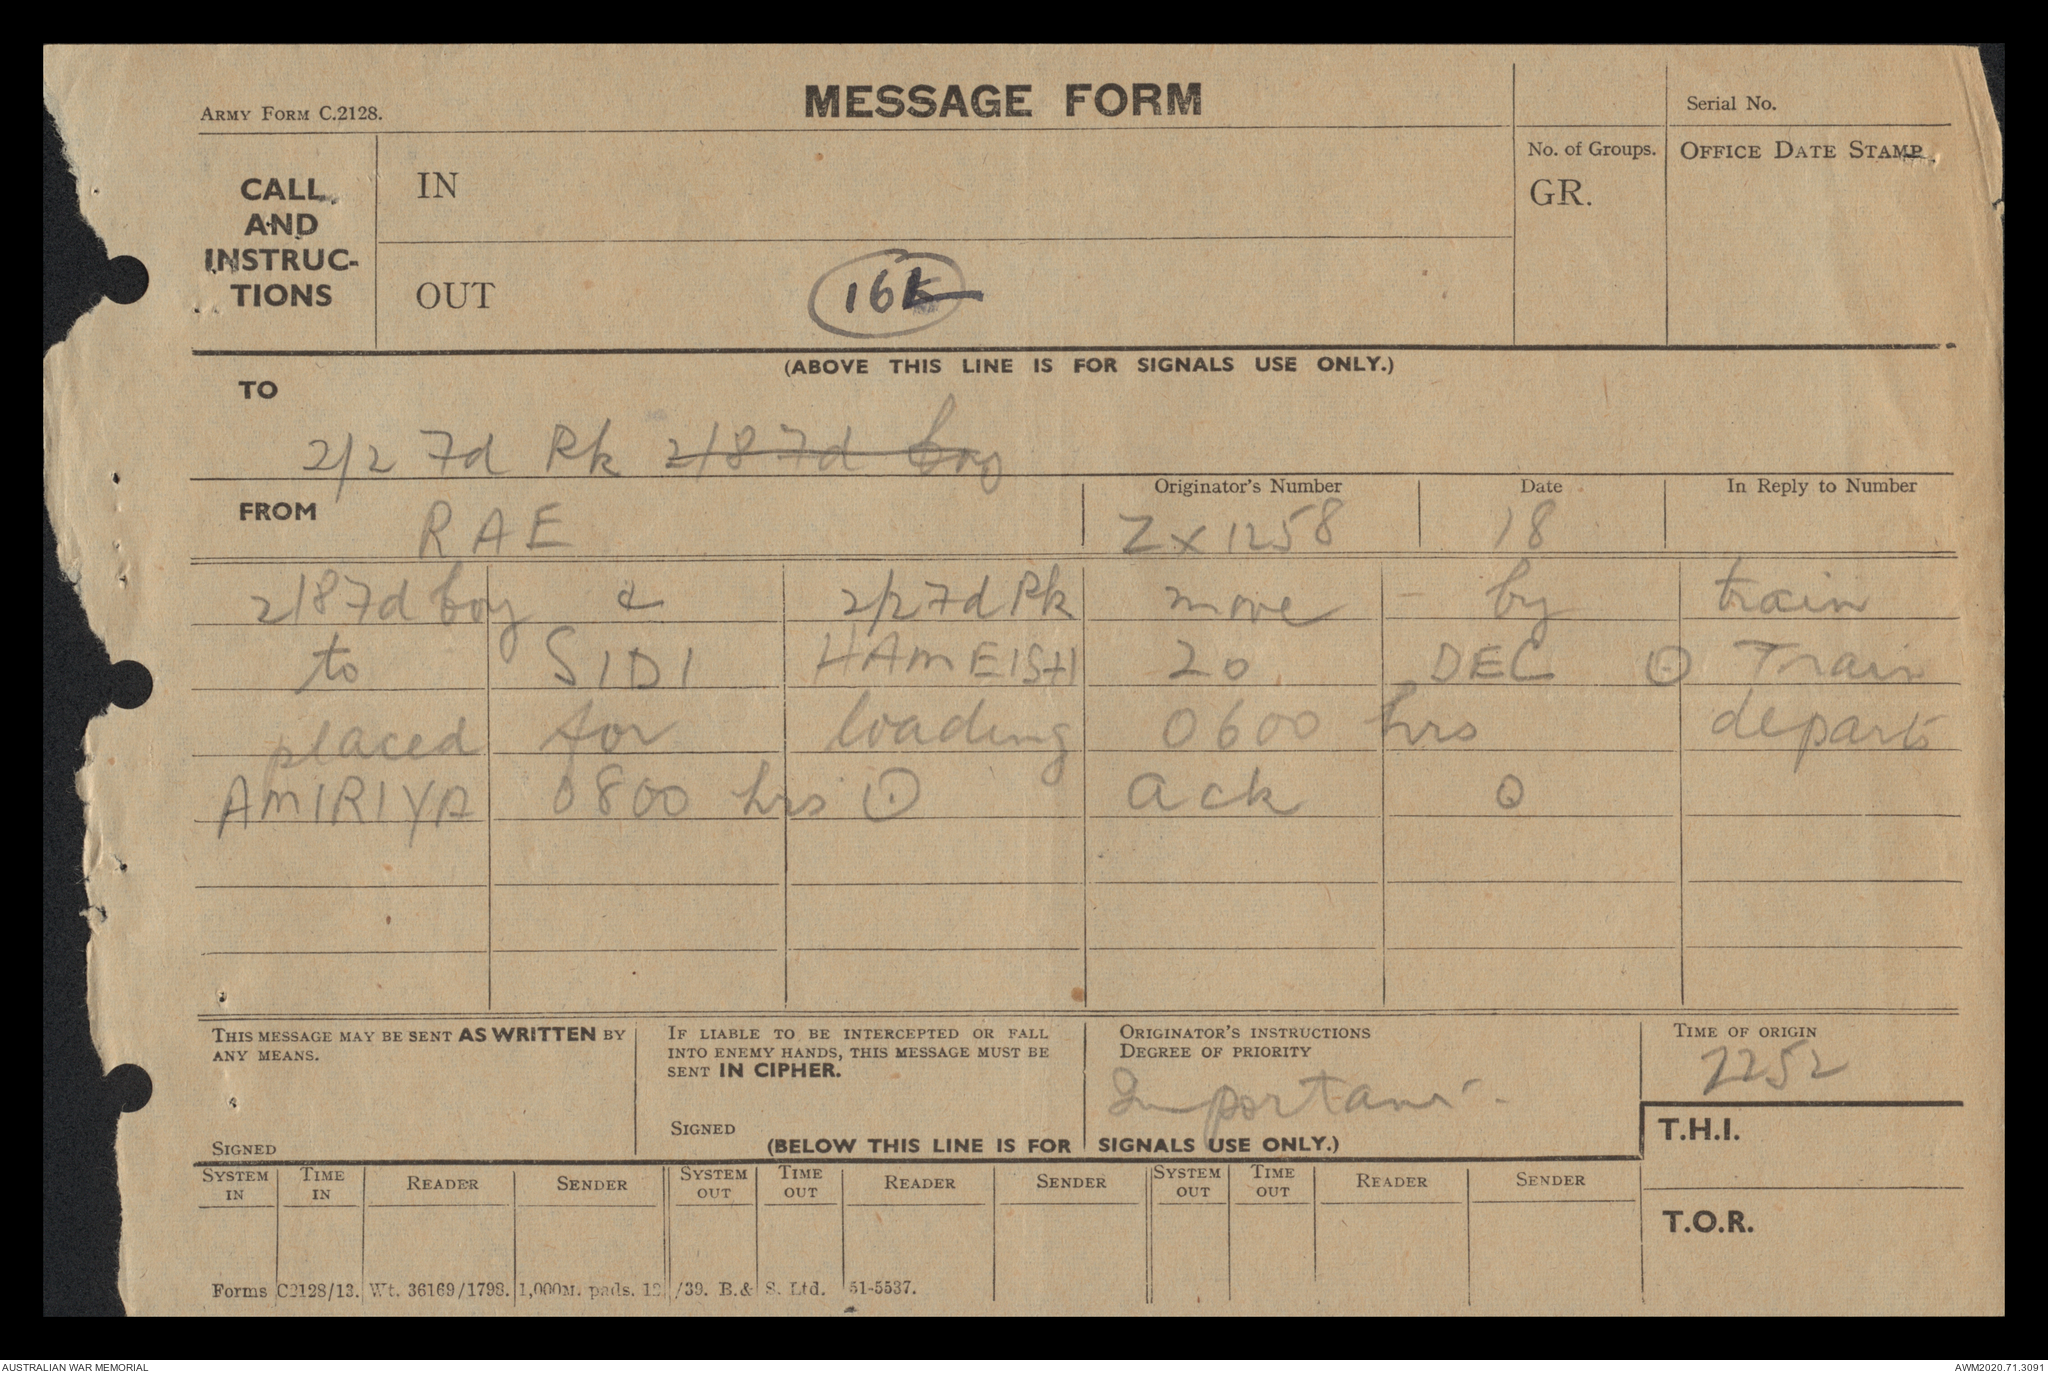 ARMY FORM C.2128.
MESSAGE FORM
Serial No.
CALL AND INSTRUC-TIONS
IN
No. of Groups.
GR.
OFFICE DATE STAMP.
OUT
16K
(ABOVE THIS LINE IS FOR SIGNALS USE ONLY.)
TO
2/2 7d Pk 2/8 7d Coy
FROM RAE
Originator's Number ZX1258
Date 18
In Reply to Number
2/8 7d Coy & 2/2 7d Pk move - by train
to SIDI HAMEISH 20 DEC ⊙ Train
placed for loading 0600 hrs departs
AMIRIYA 0800 hrs ⊙ ack
THIS MESSAGE MAY BE SENT AS WRITTEN BY
ANY MEANS.
SIGNED
IF LIABLE TO BE INTERCEPTED OR FALL
INTO ENEMY HANDS, THIS MESSAGE MUST BE
SENT IN CIPHER.
SIGNED
ORIGINATOR'S INSTRUCTIONS
DEGREE OF PRIORITY
Important.
TIME OF ORIGIN
2252
(BELOW THIS LINE IS FOR SIGNALS USE ONLY.)
T.H.I.
SYSTEM IN TIME IN READER SENDER SYSTEM OUT TIME OUT READER SENDER SYSTEM OUT TIME OUT READER SENDER
T.O.R.
Forms C2128/13. Wt. 36169/1798. 1,000M. pads. 12/39. B.& S. Ltd. 51-5537.
AUSTRALIAN WAR MEMORIAL
AWM2020.71.3091